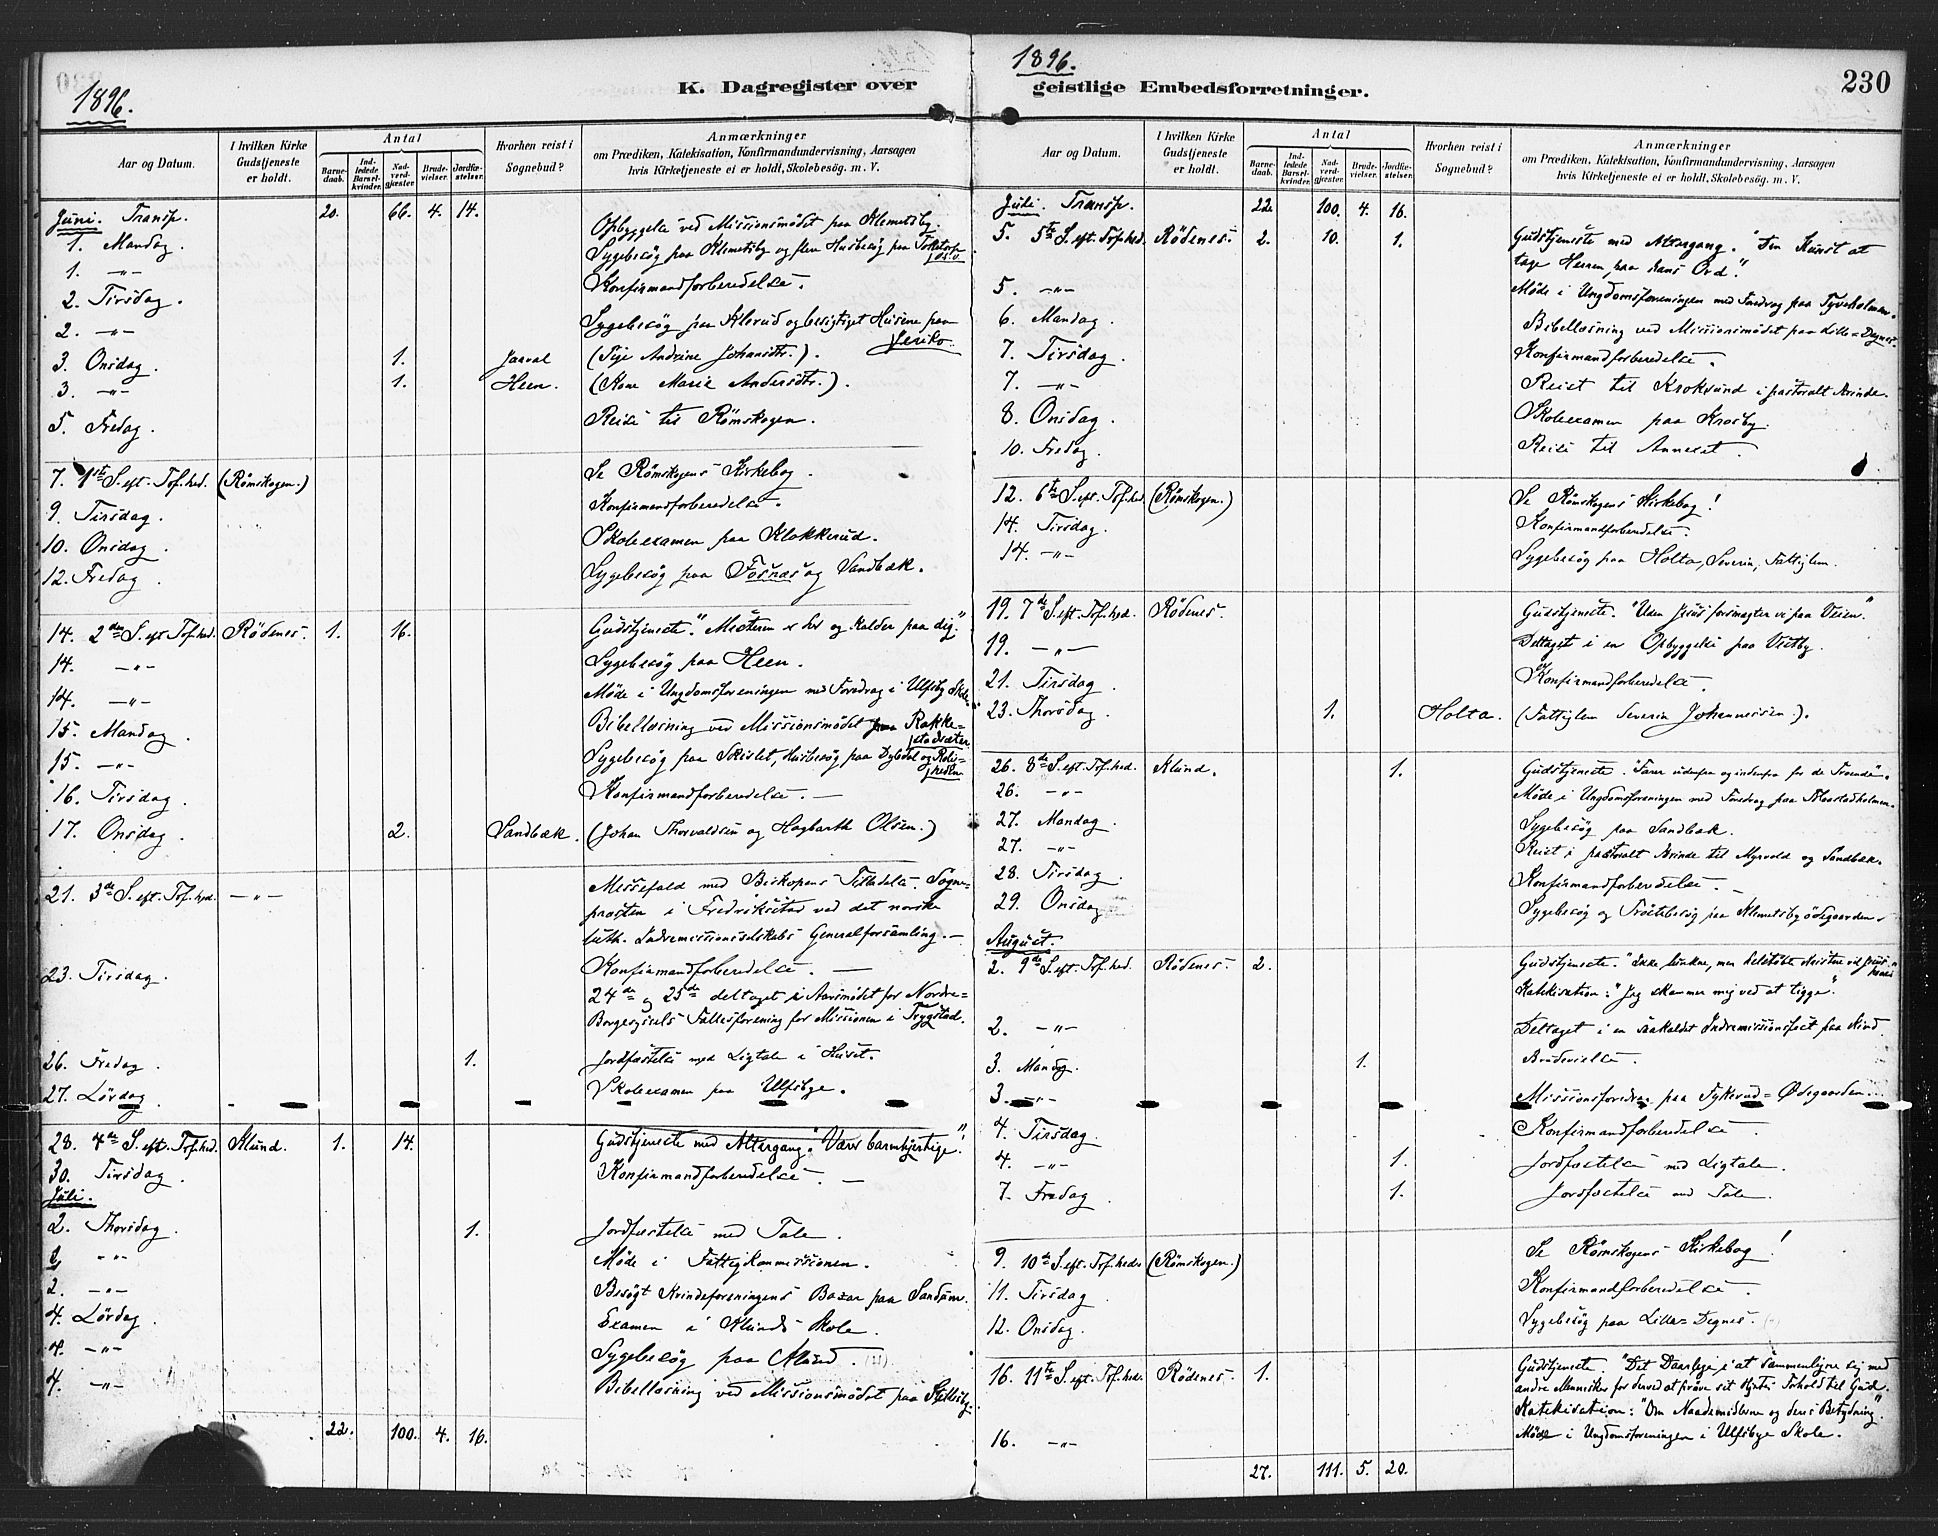 1896.
K. Dagregister over
Aar og Datum.
I hvilken Kirke Gudstjeneste er holdt.
Antal
Barnedaab.
Indledede Barselkvinder.
Nadverdgjæster.
Brudevielser.
Jordfæstelser.
Hvorhen reist i Sognebud?
Anmærkninger
om Prædiken, Katekisation, Konfirmandundervisning, Aarsagen
hvis Kirketjeneste ei er holdt, Skolebesøg. m. V.
Juni. Transp. 20. 66. 4. 14.
1. Mandag. Opbyggelse ved Missionsmødet paa Klemetsby.
1. -"- Sygebesøg paa Klemetsby og flere Husbesøg paa
2. Tirsdag. Konfirmandforberedelse.
2. -"- Sygebesøg paa Klerud og besigtiget Husene paa Jeriko.
3. Onsdag. 1. Jaaval (Pige Andrine Johansdtr.).
3. -"- 1. Heen. (Kone Marie Andersdtr.).
5. Fredag. Reise til Rømskogen.
7. 1ste S. eft. Tref.hed. (Rømskogen.) Se Rømskogens Kirkebog.
9. Tirsdag. Konfirmandforberedelse.
10. Onsdag. Skoleexamen paa Klokkerud.
12. Fredag. Sygebesøg paa Fosnæs og Sandbæk.
14. 2den S. eft Tref.hed. Rödenes. 1. 16. Gudstjeneste. "Mesteren er her og kalder paa dig."
14. -"- Sygebesøg paa Heen.
14. -"- Møde i Ungdomsforeningen med Foredrag i Ulfsby Skole.
15. Mandag. Bibellæsning ved Missionsmødet paa Rakkestadsæter.
15. -"- Sygebesøg paa Skislet, Husbesøg paa Dybedal og
16. Tirsdag. Konfirmandforberedelse. —
17. Onsdag. 2. Sandbæk. (Johan Thorvaldsen og Hagbarth Olsen.)
21. 3de S. eft. Tref.hed. -"- Messefald med Biskopens Tilladelse. Sogne-
præsten i Fredriksstad ved det norske
luth. Indremissionsselskabs Generalforsamling. —
23. Tirsdag. Konfirmandforberedelse. —
24de og 25de deltaget i Aarsmødet for Nordre-
Borgesyssels Fællesforening for Missionen i Trygstad.
26. Fredag. 1. Jordfæstelse med Ligtale i Huset.
27. Lördag Skoleexamen paa Ulfsbye.
28. 4de S. eft. Tref.hed. Klund. 1. 14. Gudstjeneste med Altergang. "Værer barmhjertige".
30. Tirsdag. Konfirmandforberedelse. —
Juli.
2. Thorsdag. 1. Jordfæstelse med Tale.
2. -"- Møde i Fattigkommissionen.
2. -"- Besøgt Kvindeforeningens Bazar paa Sandum.
4. Lördag. Examen i Klunds Skole.
4. -"- Sygebesøg paa Klund.
4. -"- Bibellæsning ved Missionsmødet paa
22. 100. 4. 16.
1896.
geistlige Embedsforretninger.
230
Aar og Datum.
I hvilken Kirke Gudstjeneste er holdt.
Antal
Barnedaab.
Indledede Barselkvinder.
Nadverdgjæster.
Brudevielser.
Jordfæstelser.
Hvorhen reist i Sognebud?
Anmærkninger
om Prædiken, Katekisation, Konfirmandundervisning, Aarsagen
hvis Kirketjeneste ei er holdt, Skolebesøg. m. V.
Juli. Transp. 22. 100. 4. 16.
5. 5te S. eft. Tref.hed. Rödenes. 2. 10. 1. Gudstjeneste med Altergang. "Den Kunst at
tage Herren paa hans Ord."
5. -"- Møde i Ungdomsforeningen med Foredrag paa Tyveholmen.
6. Mandag. Bibellæsning ved Missionsmødet paa Lille=Degnes.
7. Tirsdag. Konfirmandforberedelse.
7. -"- Reist til Kroksund i pastoralt Ærinde.
8. Onsdag. Skoleexamen paa Krosby.
10. Fredag. Reise til Annexet.
12. 6te S. eft. Tref.hed. (Rømskogen.) Se Rømskogens Kirkebog!
14. Tirsdag. Konfirmandforberedelse.
14. -"- Sygebesøg paa Holta, Severin, Fattiglem.
19. 7de S. eft Tref.hed. Rödenes. Gudstjeneste. "Uden Jesus forsmægter vi paa Veien."
19. -"- Deltaget i en Opbyggelse paa Vestby.
21. Tirsdag. Konfirmandforberedelse.
23. Thorsdag. 1. Holta. (Fattiglem Severin Johannesen.).
26. 8de S. eft. Tref.hed. Klund. 1. Gudstjeneste. "Farer udenfra og indenfra for de Troende".
26. -"- Møde i Ungdomsforeningen med Foredrag paa
27. Mandag. Sygebesøg paa Sandbæk.
27. -"- Reist i pastoralt Ærinde til Myrvold og Sandbæk.
28. Tirsdag. Konfirmandforberedelse. —
29. Onsdag. Sygebesøg og Trøstebesøg paa Klemetsbyødegaarden.
August.
2. 9de S. eft. Tref.hed. Rödenes. 2. Gudstjeneste. "Ikke men helstøbte Kristne vil Jesus have."
Katekisation: "Jeg skammer mig ved at tigge".
2. -"- Deltaget i en saakaldet Indremissionsfest paa Kind.
3. Mandag. 1. Brudevielse.
3. -"- Missionsforedrag paa Fykerud=Ødegaarden.
4. Tirsdag. Konfirmandforberedelse.
4. -"- 1. Jordfæstelse med Ligtale.
7. Fredag. 1. Jordfæstelse med Tale.
9. 10de S. eft. Tref.hed. (Rømskogen.) Se Rømskogens Kirkebog!
11. Tirsdag. Konfirmandforberedelse.
12. Onsdag. Sygebesøg paa Lille=Degnes.
16. 11te S. eft. Tref.hed. Rödenes. 1. Gudstjeneste. "Det Daarlige i at sammenligne sig med
andre Mennesker for derved at prøve sit Hjertes Forhold til Gud.
Katekisation: "Om Naademidlerne og deres Betydning".
16. -"- Møde i Ungdomsforeningen i Ulfsbye Skole.
27. 111. 5. 20.